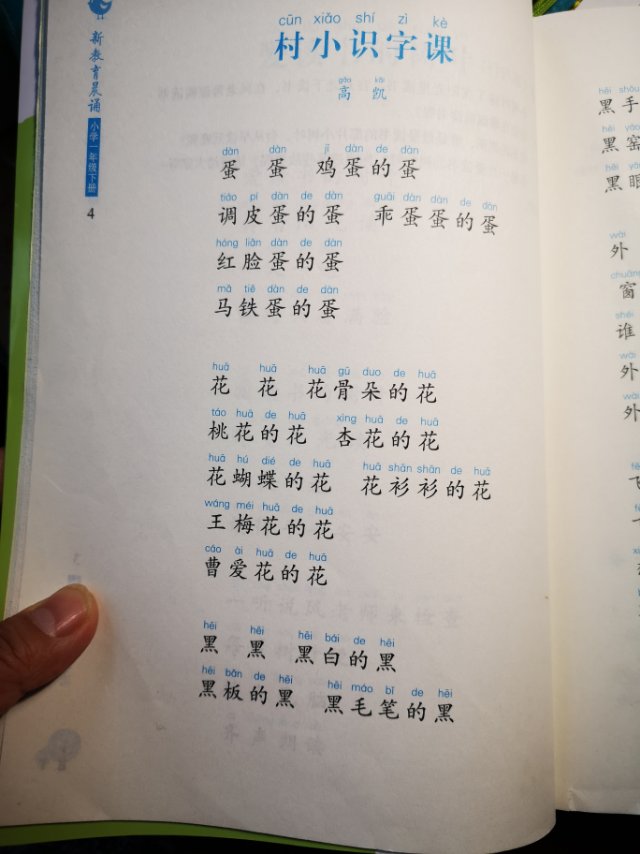 新教育晨诵
小学一年级下册
4
cūn xiǎo shí zì kè
村小识字课
gāo kǎi
高 凯
dàn dàn jī dàn de dàn
蛋 蛋 鸡蛋的蛋
tiáo pí dàn de dàn guāi dàn dàn de dàn
调皮蛋的蛋 乖蛋蛋的蛋
hóng liǎn dàn de dàn
红脸蛋的蛋
mǎ tiě dàn de dàn
马铁蛋的蛋
huā huā huā gū duo de huā
花 花 花骨朵的花
táo huā de huā xìng huā de huā
桃花的花 杏花的花
huā hú dié de huā huā shān shān de huā
花蝴蝶的花 花衫衫的花
wáng méi huā de huā
王梅花的花
cáo ài huā de huā
曹爱花的花
hēi hēi hēi bái de hēi
黑 黑 黑白的黑
hēi bǎn de hēi hēi máo bǐ de hēi
黑板的黑 黑毛笔的黑
hēi shǒu
黑手
hēi yáo
黑窑
hēi yǎn
黑眼
wài
外
chuāng
窗
shéi
谁
wài
外
wài
外